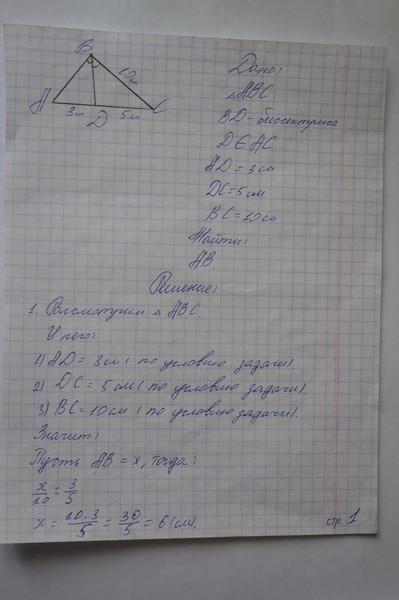 B
10 см
A
3 см
D
5 см
C
Дано:
△ABC
BD - биссектриса
D∈AC
AD = 3 см
DC = 5 см
BC = 10 см
Найти:
AB.
Решение:
1. Рассмотрим △ ABC.
У него:
1) AD = 3 см ( по условию задачи).
2) DC = 5 см ( по условию задачи).
3) BC = 10 см ( по условию задачи).
Значит:
Пусть AB = x, тогда:
x/10 = 3/5
x = 10·3/5 = 30/5 = 6 (см).
стр. 1